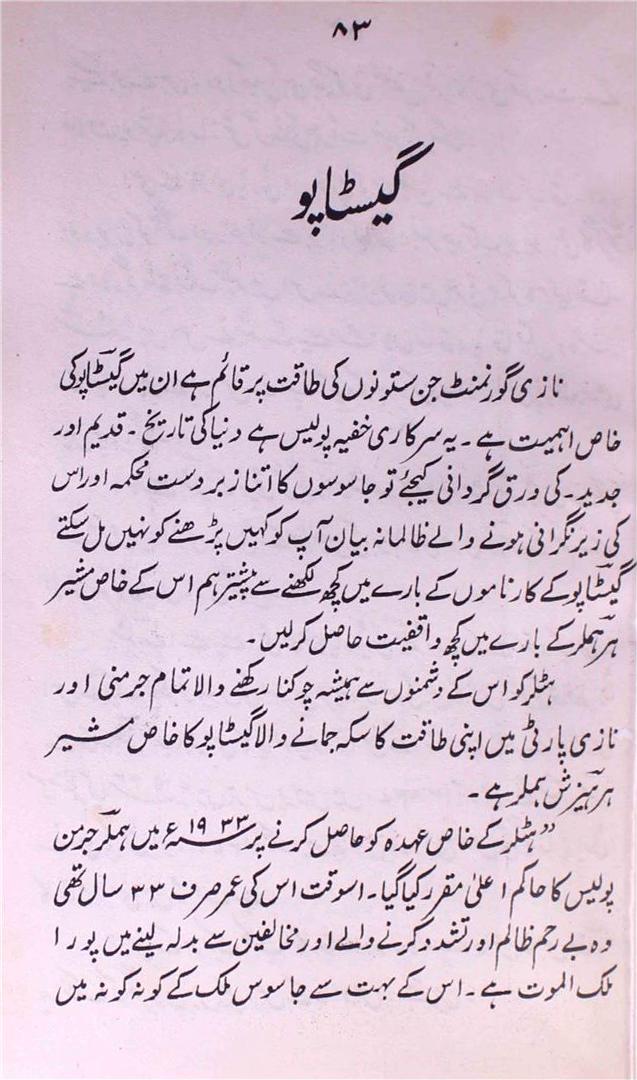 ۸۳
گیسٹاپو
نازی گورنمنٹ جن ستونوں کی طاقت پر قائم ہے ان میں گیسٹاپو کی
خاص اہمیت ہے۔ یہ سرکاری خفیہ پولیس ہے دنیا کی تاریخ۔ قدیم اور
جدید۔ کی ورق گردانی کیجئے تو جاسوسوں کا اتنا زبردست محکمہ اور اس
کی زیر نگرانی ہونے والے ظالمانہ بیان آپ کو کہیں پڑھنے کو نہیں مل سکتے
گیسٹاپو کے کارناموں کے بارے میں کچھ لکھنے سے پیشتر ہم اس کے خاص مشیر
ہر ہملر کے بارے میں کچھ واقفیت حاصل کرلیں۔
ہٹلر کو اس کے دشمنوں سے ہمیشہ چوکنا رکھنے والا تمام جرمنی اور
نازی پارٹی میں اپنی طاقت کا سکہ جمانے والا گیسٹاپو کا خاص مشیر
ہر ہیزش ہملر ہے۔
”ہٹلر کے خاص عہدہ کو حاصل کرنے پر ۱۹۳۳ء میں ہملر جرمن
پولیس کا حاکم اعلیٰ مقرر کیا گیا۔ اسوقت اس کی عمر صرف ۳۳ سال تھی
وہ بے رحم ظالم اور تشدد کرنے والے اور مخالفین سے بدلہ لینے میں پورا
ملک الموت ہے۔ اس کے بہت سے جاسوس ملک کے کونہ کونہ میں